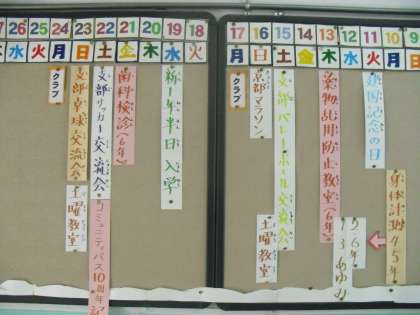 26 25 24 23 22 21 20 19 18
水 火 月 日 土 金 木 水 火
17 16 15 14 13 12 11 10 9
月 日 土 金 木 水 火 月 日
身体計測 4・5年
建国記念の日
5、6年
薬物乱用防止教室(6年)
支部バレーボール交流会
京都マラソン
土曜教室
クラブ
新1年半日入学
歯科検診(6年)
支部サッカー交流会
コミュニティバス10周年記
支部卓球交流会
土曜教室
クラブ